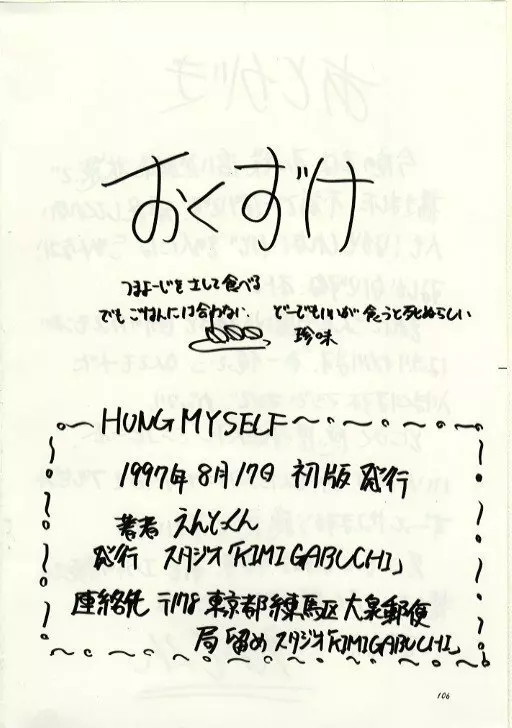 おくづけ
つまよーじをさして食べる
でもごはんには合わない どーでもいいが 食うと死ぬらしい
珍味
HUNG MYSELF
1997年8月17日 初版発行
著者 えんとっくん
発行 スタジオ「KIMIGABUCHI」
連絡先 〒178 東京都練馬区大泉郵便
局留め スタジオ「KIMIGABUCHI」
106